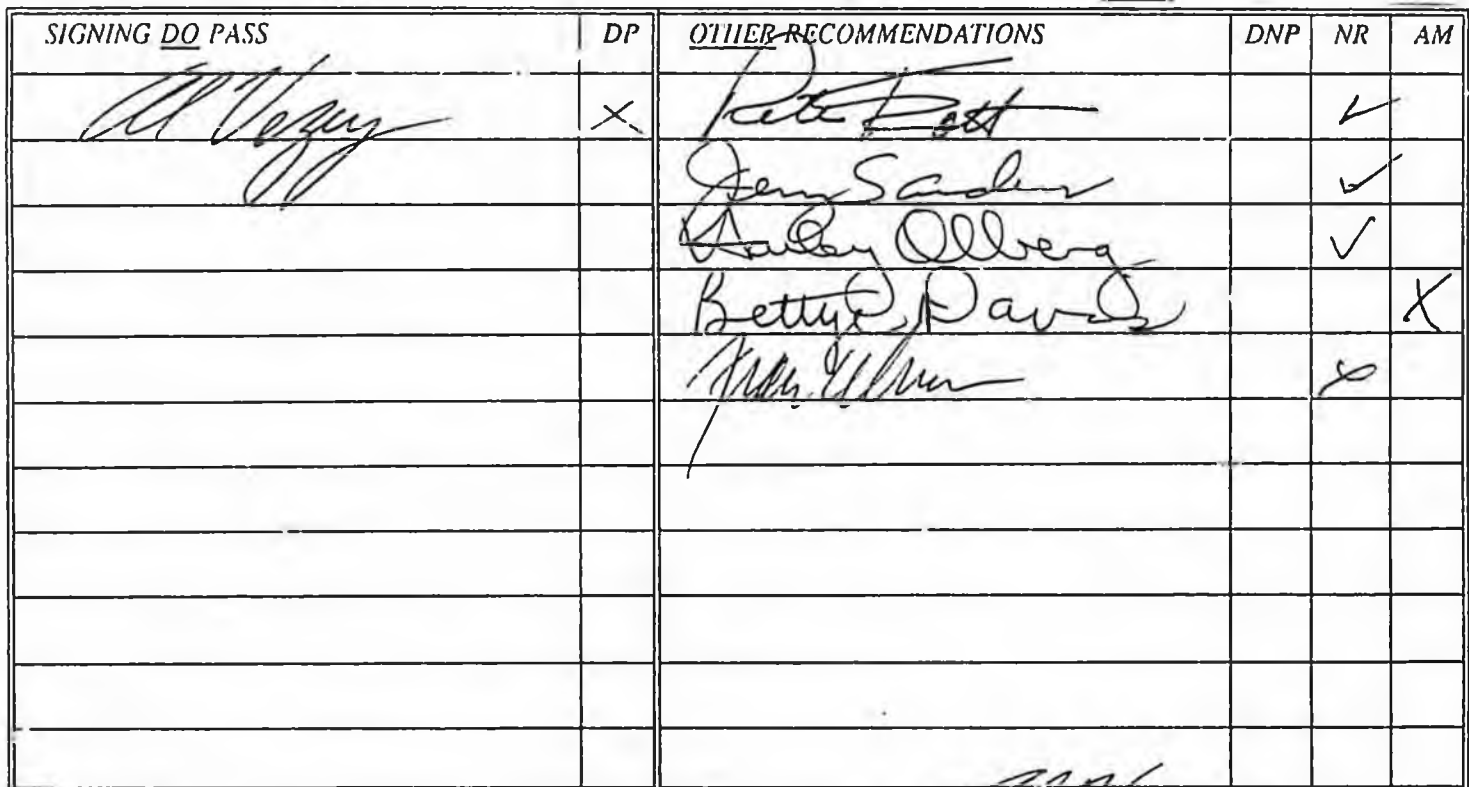 SIGNING DO PASS DP OTHER RECOMMENDATIONS DNP NR AM
Al Vezey X Pete Kott ✓
Jerry Sanders ✓
Harley Olberg ✓
Betty Davis X
X